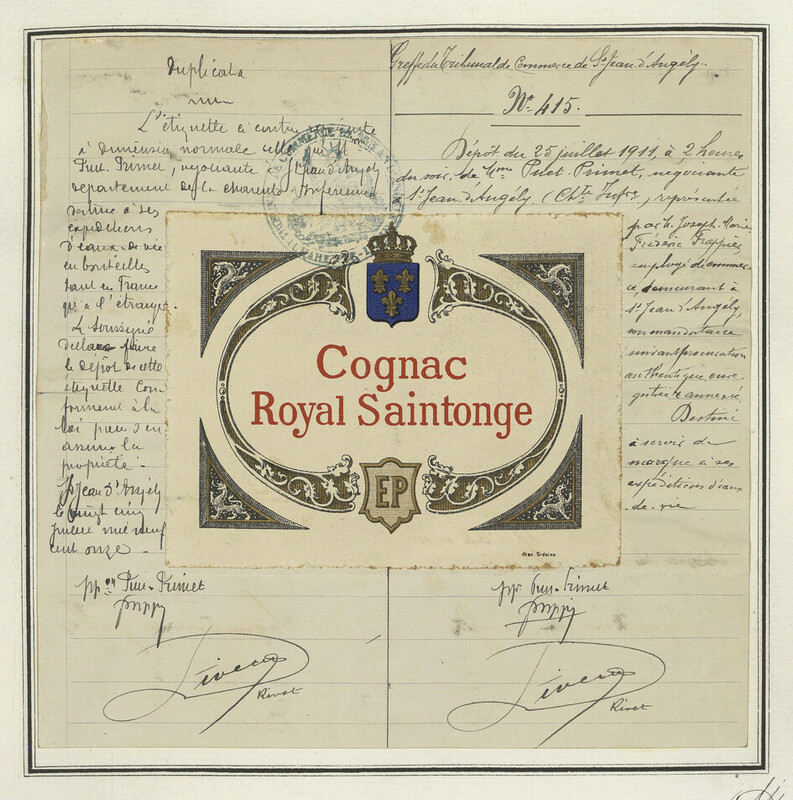 Duplicata
L'étiquette ci contre représente
à dimension normale celle que Mme
Puet-Primet, négociante à St Jean d'Angély
département de la Charente Inférieure
destine à ses
expéditions
d'eaux-de-vie
en bouteilles
tant en France
qu'à l'étranger.
Le soussigné
déclare faire
le dépôt de cette
étiquette con
formément à la
loi pour s'en
assurer la
propriété -
St Jean d'Angély
le vingt cinq
juillet mil neuf
cent onze -
ppon
Rivet
Greffe du Tribunal de Commerce de St Jean d'Angély.
No 415.
Dépôt du 25 juillet 1911, à 2 heures
du soir, de Mme Puet-Primet, négociante
à St Jean d'Angély (Chte Infre), représentée
par M. Joseph-Marie
Frédéric
employé de commerce
demeurant à
St Jean d'Angély,
son mandataire
suivant procuration
authentique enre-
gistrée & annexée
Destiné
à servir de
marque à ses
expéditions d'eaux
-de-vie
pp.
Rivet
Cognac
Royal Saintonge
EP